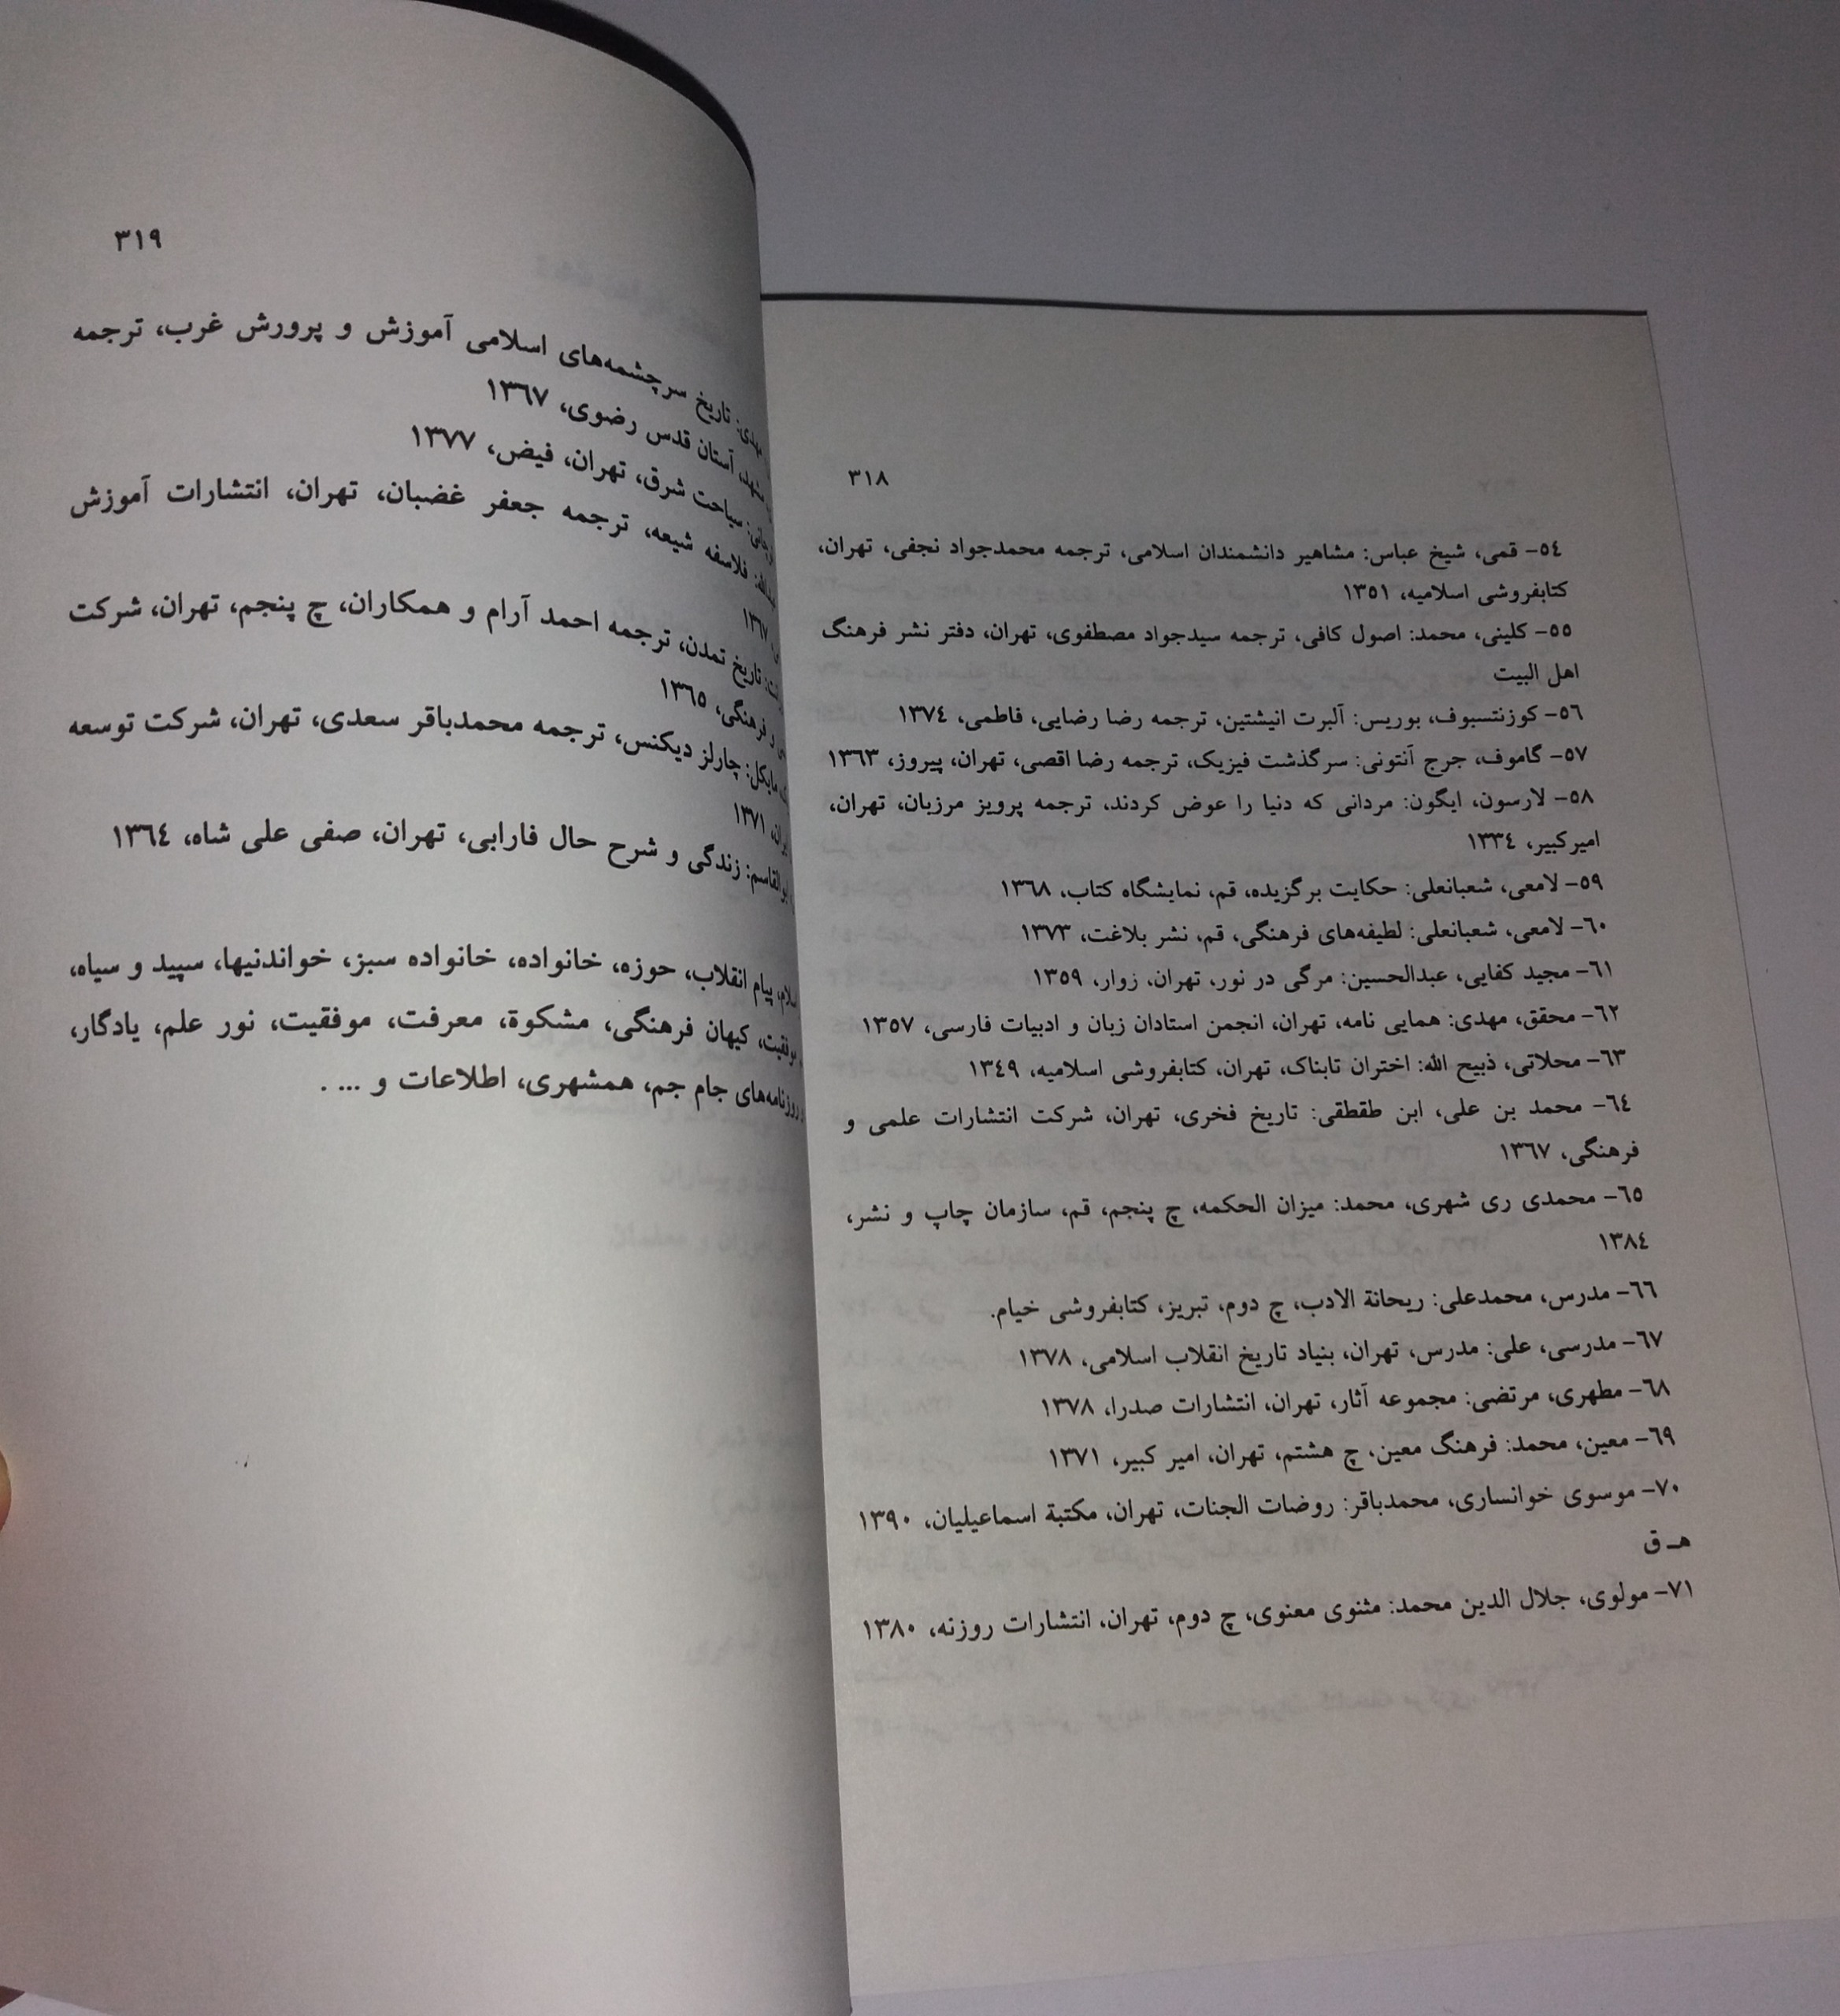 ٣١٨
٥٤- قمی، شیخ عباس: مشاهیر دانشمندان اسلامی، ترجمه محمدجواد نجفی، تهران،
کتابفروشی اسلامیه، ١٣٥١
٥٥- کلینی، محمد: اصول کافی، ترجمه سیدجواد مصطفوی، تهران، دفتر نشر فرهنگ
اهل البیت
٥٦- کوزنتسبوف، بوریس: آلبرت انیشتین، ترجمه رضا رضایی، فاطمی، ١٣٧٤
٥٧- گاموف، جرج آنتونی: سرگذشت فیزیک، ترجمه رضا اقصی، تهران، پیروز، ١٣٦٣
٥٨- لارسون، ایگون: مردانی که دنیا را عوض کردند، ترجمه پرویز مرزبان، تهران،
امیرکبیر، ١٣٣٤
٥٩- لامعی، شعبانعلی: حکایت برگزیده، قم، نمایشگاه کتاب، ١٣٦٨
٦٠- لامعی، شعبانعلی: لطیفه‌های فرهنگی، قم، نشر بلاغت، ١٣٧٣
٦١- مجید کفایی، عبدالحسین: مرگی در نور، تهران، زوار، ١٣٥٩
٦٢- محقق، مهدی: همایی نامه، تهران، انجمن استادان زبان و ادبیات فارسی، ١٣٥٧
٦٣- محلاتی، ذبیح الله: اختران تابناک، تهران، کتابفروشی اسلامیه، ١٣٤٩
٦٤- محمد بن علی، ابن طقطقی: تاریخ فخری، تهران، شرکت انتشارات علمی و
فرهنگی، ١٣٦٧
٦٥- محمدی ری شهری، محمد: میزان الحکمه، چ پنجم، قم، سازمان چاپ و نشر،
١٣٨٤
٦٦- مدرس، محمدعلی: ریحانة الادب، چ دوم، تبریز، کتابفروشی خیام.
٦٧- مدرسی، علی: مدرس، تهران، بنیاد تاریخ انقلاب اسلامی، ١٣٧٨
٦٨- مطهری، مرتضی: مجموعه آثار، تهران، انتشارات صدرا، ١٣٧٨
٦٩- معین، محمد: فرهنگ معین، چ هشتم، تهران، امیر کبیر، ١٣٧١
٧٠- موسوی خوانساری، محمدباقر: روضات الجنات، تهران، مکتبة اسماعیلیان، ١٣٩٠
هـ ق
٧١- مولوی، جلال الدین محمد: مثنوی معنوی، چ دوم، تهران، انتشارات روزنه، ١٣٨٠
٣١٩
مهدی: تاریخ سرچشمه‌های اسلامی آموزش و پرورش غرب، ترجمه
مشهد، آستان قدس رضوی، ١٣٦٧
سیاحت شرق، تهران، فیض، ١٣٧٧
فلاسفه شیعه، ترجمه جعفر غضبان، تهران، انتشارات آموزش
١٣٦٧
تاریخ تمدن، ترجمه احمد آرام و همکاران، چ پنجم، تهران، شرکت
و فرهنگی، ١٣٦٥
مایکل: چارلز دیکنس، ترجمه محمدباقر سعدی، تهران، شرکت توسعه
١٣٧١
ابوالقاسم: زندگی و شرح حال فارابی، تهران، صفی علی شاه، ١٣٦٤
پیام انقلاب، حوزه، خانواده، خانواده سبز، خواندنیها، سپید و سیاه،
موفقیت، کیهان فرهنگی، مشکوة، معرفت، موفقیت، نور علم، یادگار،
روزنامه‌های جام جم، همشهری، اطلاعات و ... .